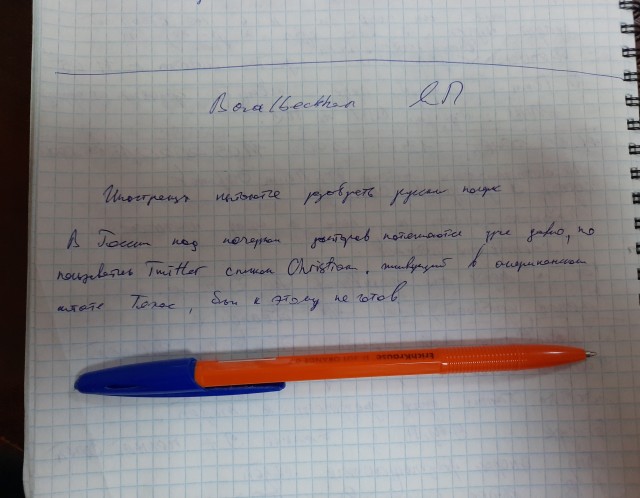 Boralbeckham ЯП
Иностранец пытается разобрать русский почерк
В России над почерком докторов потешаются уже давно, но
пользователь Twitter с ником Christian, живущий в американском
штате Техас, был к этому не готов
ErichKrause